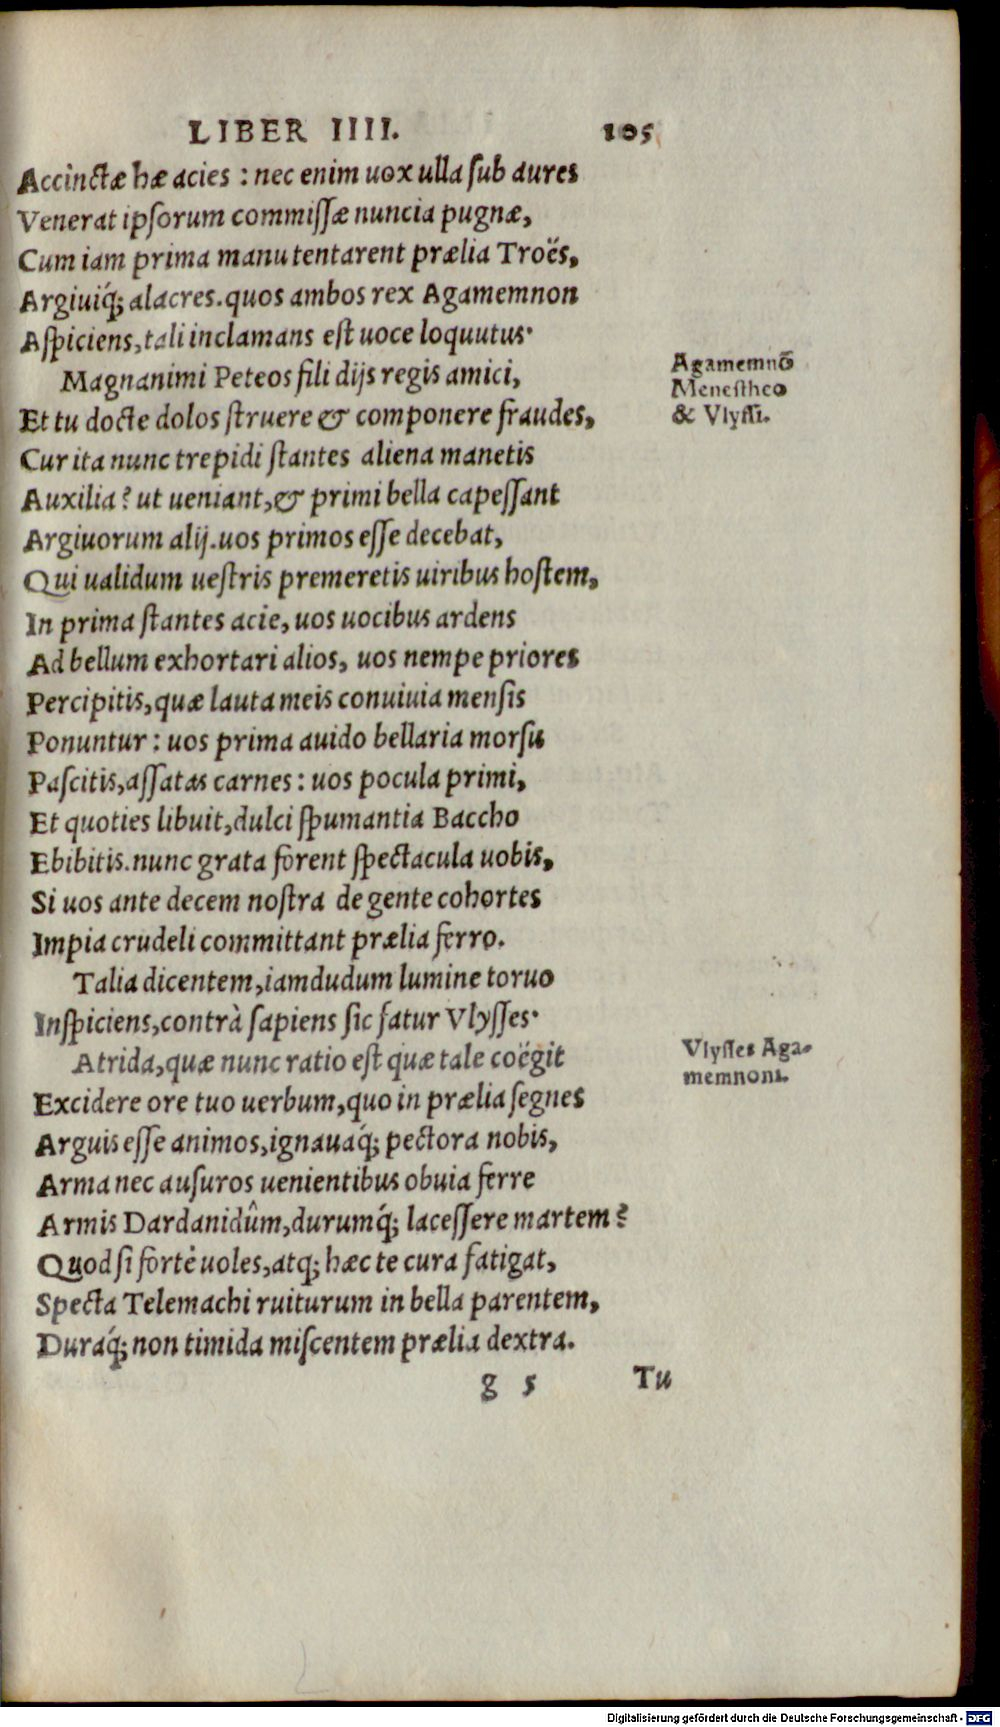 LIBER IIII. 105
Accinctæ hæ acies : nec enim uox ulla sub aures
Venerat ipsorum commissæ nuncia pugnæ,
Cum iam prima manu tentarent prælia Troës,
Argiuiq́; alacres. quos ambos rex Agamemnon
Aspiciens, tali inclamans est uoce loquutus·
Magnanimi Peteos fili dijs regis amici,
Agamemnō
Menestheo
& Vlyssi.
Et tu docte dolos struere & componere fraudes,
Cur ita nunc trepidi stantes aliena manetis
Auxilia? ut ueniant, & primi bella capessant
Argiuorum alij. uos primos esse decebat,
Qui ualidum uestris premeretis uiribus hostem,
In prima stantes acie, uos uocibus ardens
Ad bellum exhortari alios, uos nempe priores
Percipitis, quæ lauta meis conuiuia mensis
Ponuntur : uos prima auido bellaria morsu
Pascitis, assatas carnes : uos pocula primi,
Et quoties libuit, dulci spumantia Baccho
Ebibitis. nunc grata forent spectacula uobis,
Si uos ante decem nostra de gente cohortes
Impia crudeli committant prælia ferro.
Talia dicentem, iamdudum lumine toruo
Inspiciens, contrà sapiens sic fatur Vlysses·
Atrida, quæ nunc ratio est quæ tale coëgit
Vlysses Aga-
memnoni.
Excidere ore tuo uerbum, quo in prælia segnes
Arguis esse animos, ignauaq́; pectora nobis,
Arma nec ausuros uenientibus obuia ferre
Armis Dardanidûm, durumq́; lacessere martem?
Quod si fortè uoles, atq; hæc te cura fatigat,
Specta Telemachi ruiturum in bella parentem,
Duraq́; non timida miscentem prælia dextra.
g 5 Tu
Digitalisierung gefördert durch die Deutsche Forschungsgemeinschaft - DFG